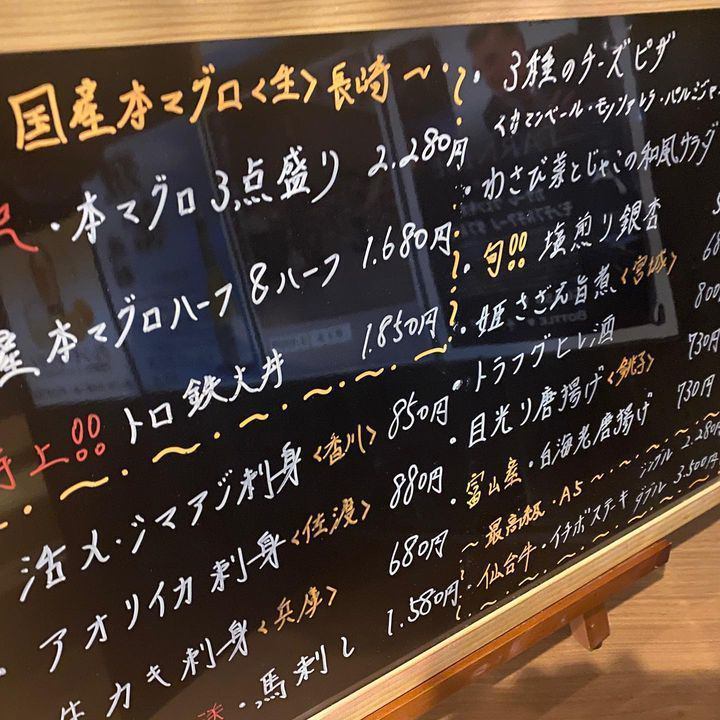 国産本マグロ〈生〉長崎
・本マグロ3点盛り 2.280円
産本マグロハーフ&ハーフ 1.680円
特上!! トロ鉄火丼 1.850円
活〆・シマアジ刺身〈香川〉 850円
・アオリイカ刺身〈佐渡〉 880円
生カキ刺身〈兵庫〉 680円
・馬刺し 1.580円
・3種のチーズピザ
カマンベール・モッツァレラ・パルミジャー
・わさび菜とじゃこの和風サラダ
・旬!! 塩煎り銀杏
・姫さざえ旨煮〈宮城〉 68
・トラフグヒレ酒 800
・目光り唐揚げ〈銚子〉 730円
・富山産・白海老唐揚げ 730円
〜最高級・A5〜 シングル 2.280円
・仙台牛・イチボステーキ ダブル 3.500円